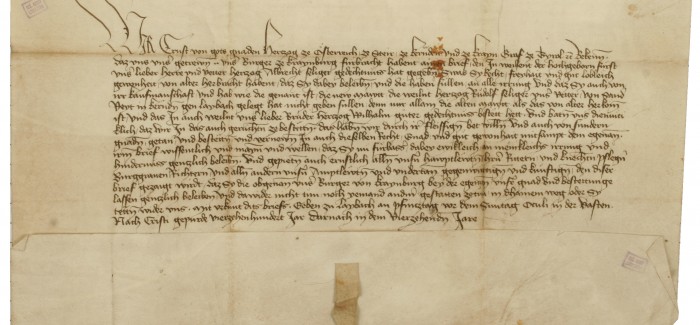 Wir Ernst von gots gnaden Herczog ze Osterreich ze Steir ze Kernden und ze Krain Graf ze Tyrol etc Bekennen
daz uns unser getrewn unser Burger ze Kraynburg furbracht habent ainen brief den In weilent der hochgeborn fürst
unser lieber Herre und vetter herczog Albrecht seliger gedechtnüss hat gegeben was Sy recht freihait und gut loblich
gewonhait von alter herbracht habent daz Sy dabey beleiben und die haben sullen an alle irrung und daz Sy auch von
irr kaufmanschaft und hab wie die genant ist die new mawtt die weilnt Herczog Rudolf seliger unser vetter von Sand
Peter in derndt gen Laybach gelegt hat nicht geben sullen denn nur allain die alten mawtt als das von alter herkomen
ist und das In auch weilnt unser lieber Bruder herczog Wilhalm guter gedechtnüss bestett hat Und batn uns diemutik
lich daz wir In das auch geruchten ze bestetten das haben wir durch ir fleissigen bet willen und auch von sundern
gnaden getan und bestetten und vernewn In auch dieselben recht gnad und gut gewonhait mitsampt dem egenanten
irm brief wissentlich und maynen und wellen daz Sy nu furbass dabey ernstleich an menikleichs irrung und
hindernüss genczlich beleiben Und gepieten auch ernstlich allen unsern haubtleuten herrn Rittern und knechten pflegern
Burggrauen Richtern und allen andern unsern Amptleuten und undertan gegenwurtigen und kunftigen den diser
brief geczaigt wirdt daz Sy die obgenanten unser Burger von Kraynburg bey der egenanten unser gnad und bestettunge
lassen genczlich beleiben und dawider nicht tun noch yemand andern gestatten zetun in dhainem weg oder Sy
teten wider uns Mit urkunt dits briefs Geben ze Laybach an phincztag vor dem Sunntag Oculi in der Vasten
Nach Cristi gepurde vierczehenhundert Jar darnach in dem vierczehendn Jare